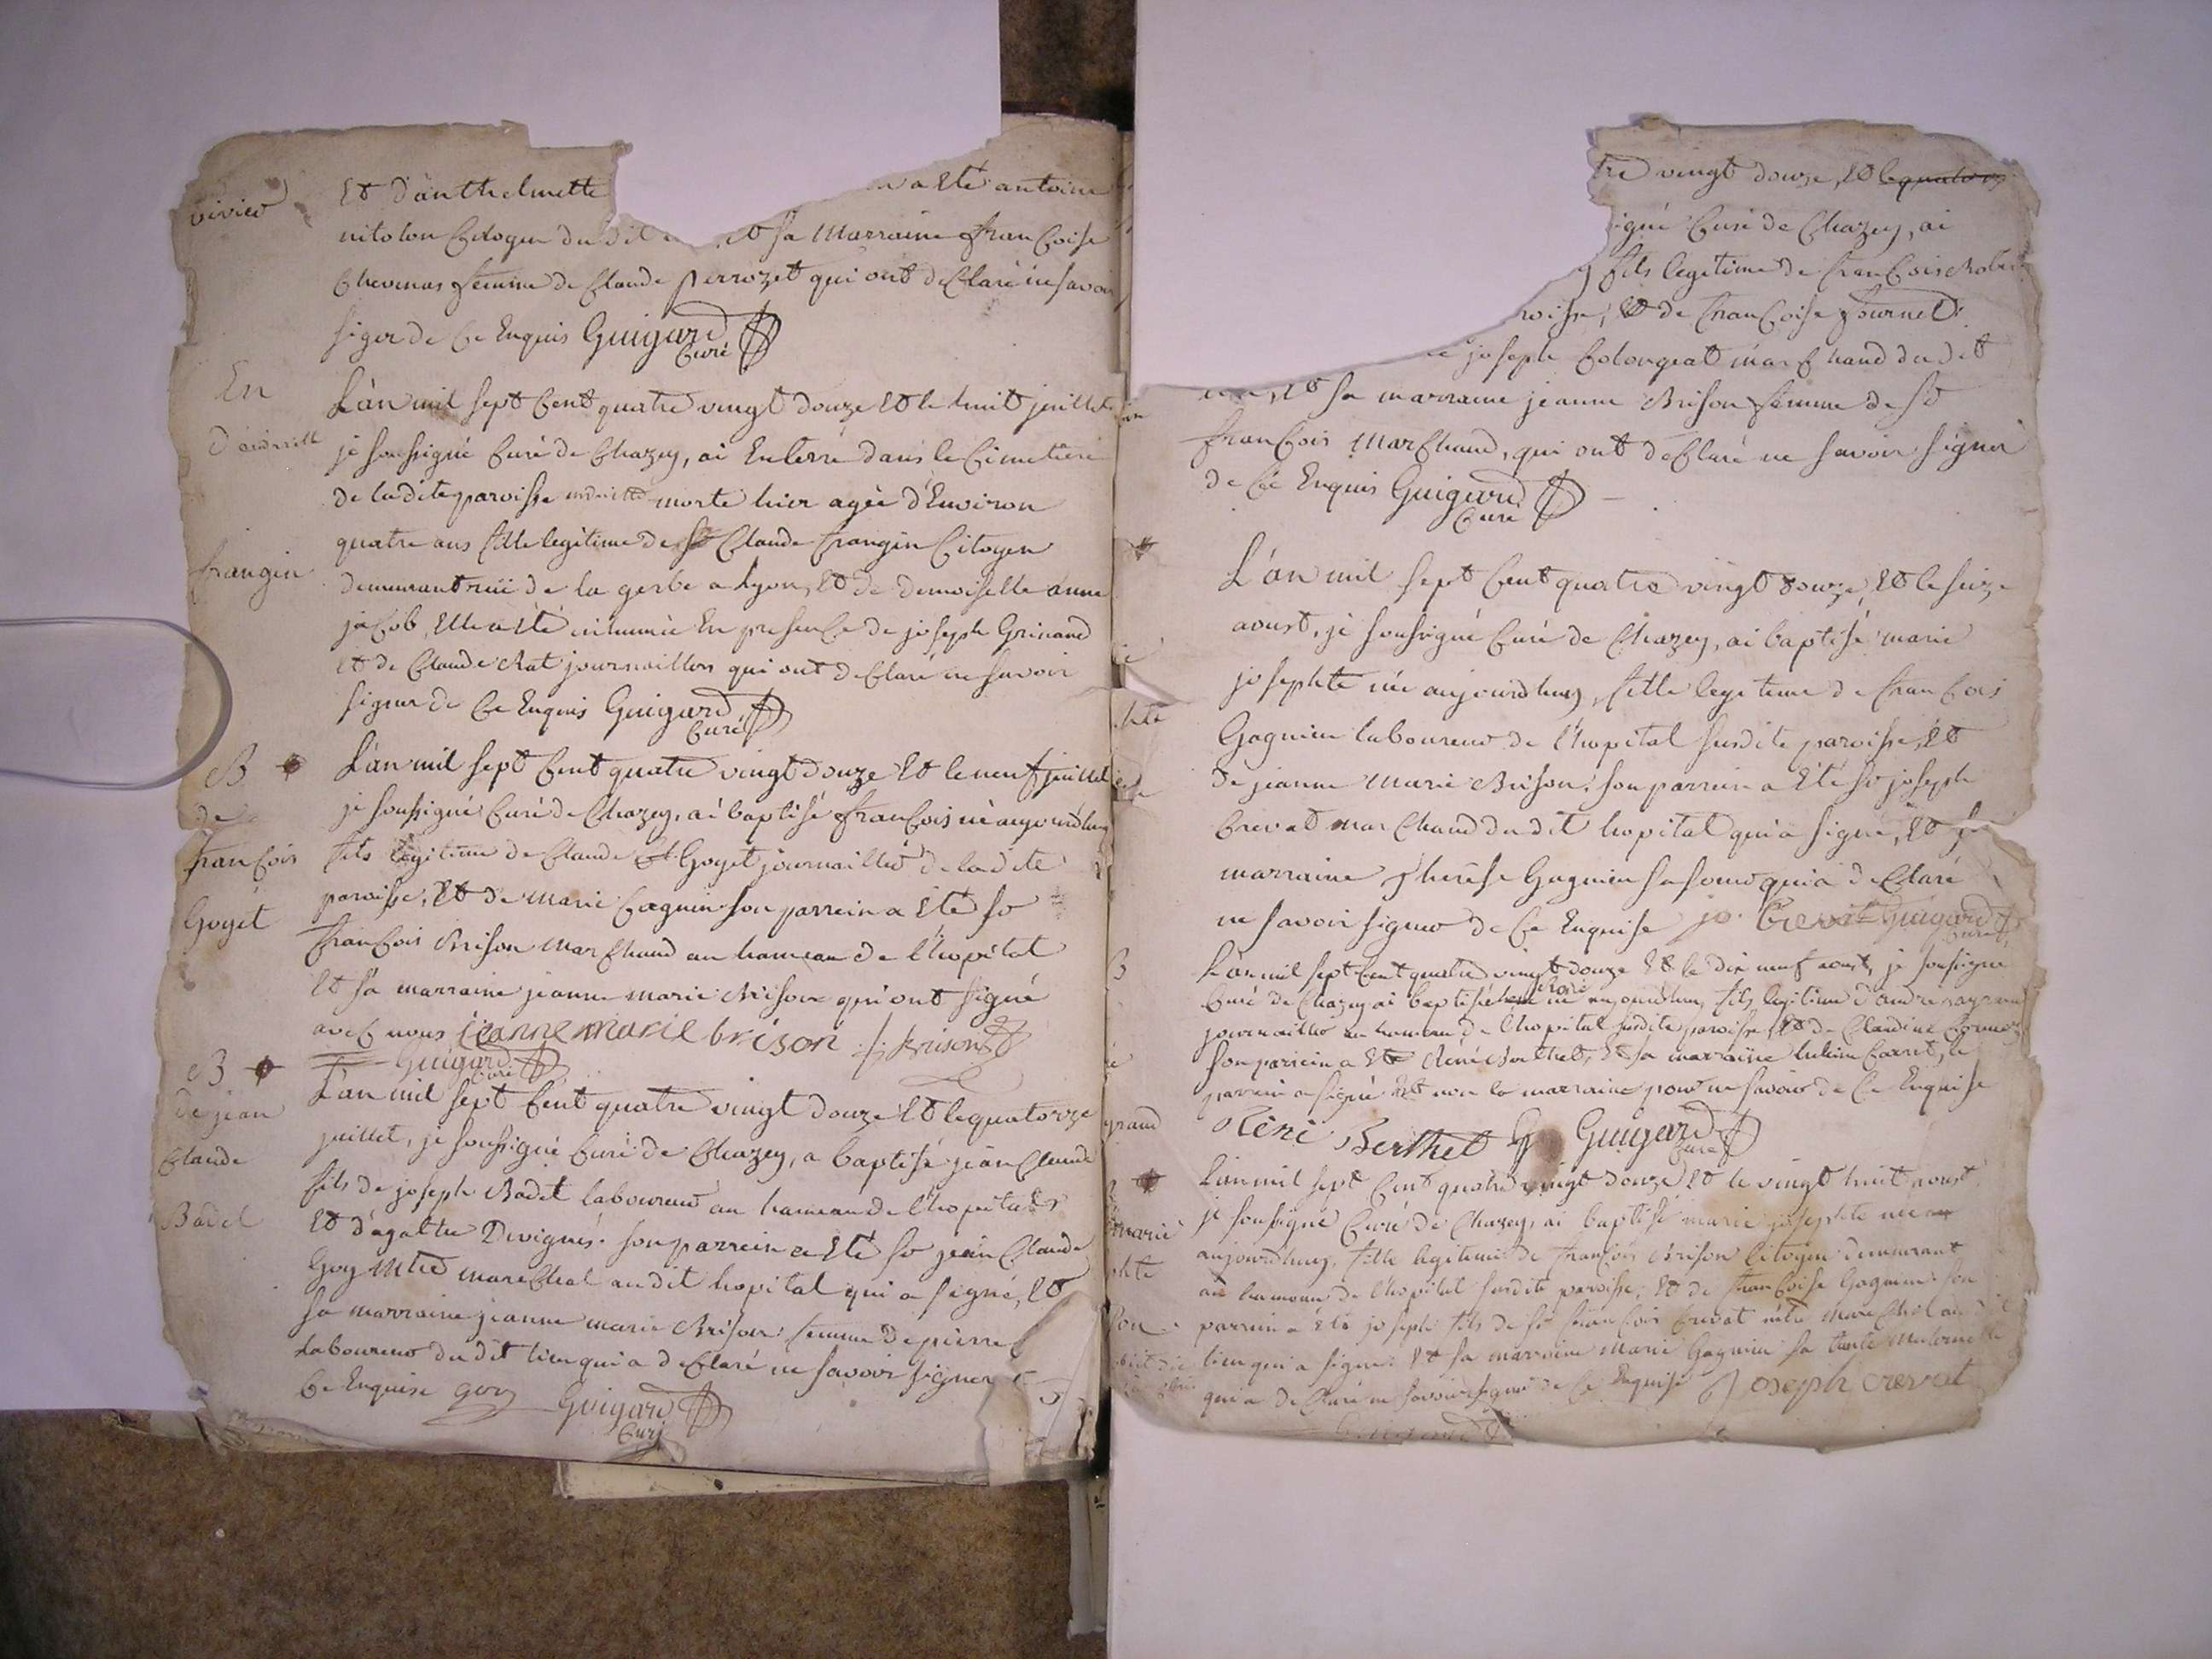 vivier
Et d'anthelmette a été antoine
nitolon Citoyen du dit et sa Marraine françoise
Chevenas femme de Claude perrozet qui ont déclaré ne savoir
signer de ce Enquis Guigard
Curé
En
frangin
L'an mil sept Cent quatre vingt douze Et le huit juillet
je soussigné Curé de Chazey, ai Enterré dans le Cimetiere
de la dite paroisse morte hier agée d'Environ
quatre ans fille legitime de Sr Claude frangin Citoyen
demeurant rüe de la gerbe a Lyon, Et de demoiselle anne
jacob, Elle a été inhumée En presence de joseph Grinand
et de Claude Rat journailliers qui ont déclaré ne savoir
signer de Ce Enquis Guigard
Curé
B
de
françois
Goyet
L'an mil sept Cent quatre vingt douze Et le neuf juillet
je soussigné Curé de Chazey, ai baptisé françois né aujourdhuy
fils legitime de Claude Goyet journaillier de la dite
paroisse, Et de Marie Gagnin son parrein a Eté sr
françois Brison marchand au hameau de l'hopital
Et sa marraine jeanne marie Brison qui ont signé
avec nous jeanne marie brison f. brison
Guigard
Curé
B
de jean
Claude
Badel
L'an mil sept Cent quatre vingt douze Et le quatorze
juillet, je soussigné Curé de Chazey, a baptisé jean Claude
fils de joseph Badel laboureur au hameau de l'hopital
Et d'agathe Devignés. son parrein a Eté sr jean Claude
Goy Mtre marechal au dit hopital qui a signé, Et
sa marraine jeanne marie Brison femme de pierre
Laboureur du dit lieu qui a déclaré ne savoir signer
Ce Enquise goy Guigard
Curé
tre vingt douze, Et le quatorze
igné Curé de Chazey, ai
fils legitime de françois Robin
roisse, Et de françoise fournel
joseph Colongeat marchand du dit
Et sa marraine jeanne Brison femme de sr
françois Marchand, qui ont déclaré ne savoir signer
de Ce Enquis Guigard
Curé
L'an mil sept Cent quatre vingt douze, Et le seize
aoust, je soussigné Curé de Chazey, ai baptisé marie
josephte née aujourdhuy, fille legitime de françois
Gagnin laboureur de l'hopital susdite paroisse, Et
de jeanne marie Brison. son parrein a Eté sr joseph
Crevat marchand du dit hopital qui a signé, Et sa
marraine Therése Gagnin sa soeur qui a déclaré
ne savoir signer de Ce Enquise jo. Crevat Guigard
Curé
B
L'an mil sept Cent quatre vingt douze Et le dix neuf aoust, je soussigné
Curé de Chazey ai baptisé René né aujourdhuy, fils legitime d'andre
journaillier au hameau de l'hopital susdite paroisse, Et de Claudine
son parrein a Eté René Berthet, Et sa marraine le
parrein a signé Et non la marraine pour ne savoir de Ce Enquise
René Berthet Guigard
Curé
L'an mil sept Cent quatre vingt douze Et le vingt huit aoust,
je soussigné Curé de Chazey, ai baptisé marie josephte née
aujourdhuy, fille legitime de françois Brison Citoyen demeurant
au hameau de l'hopital susdite paroisse, Et de françoise Gagnin. son
parrein a Eté joseph fils de Sr françois Crevat mtre Marechal au dit
lieu qui a signé. Et sa marraine Marie Gagnin sa tante maternelle
qui a déclaré ne savoir signer de Ce Enquise Joseph Crevat